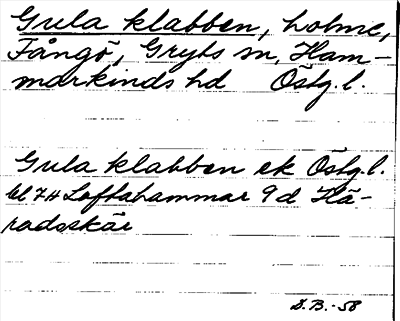 Gula klabben, holme,
Fångö, Gryts sn, Ham-
markinds hd Östg.l.
Gula klabben ek Östg.l.
bl 7H Loftahammar 9d Hä-
radsskär
S.B.-58